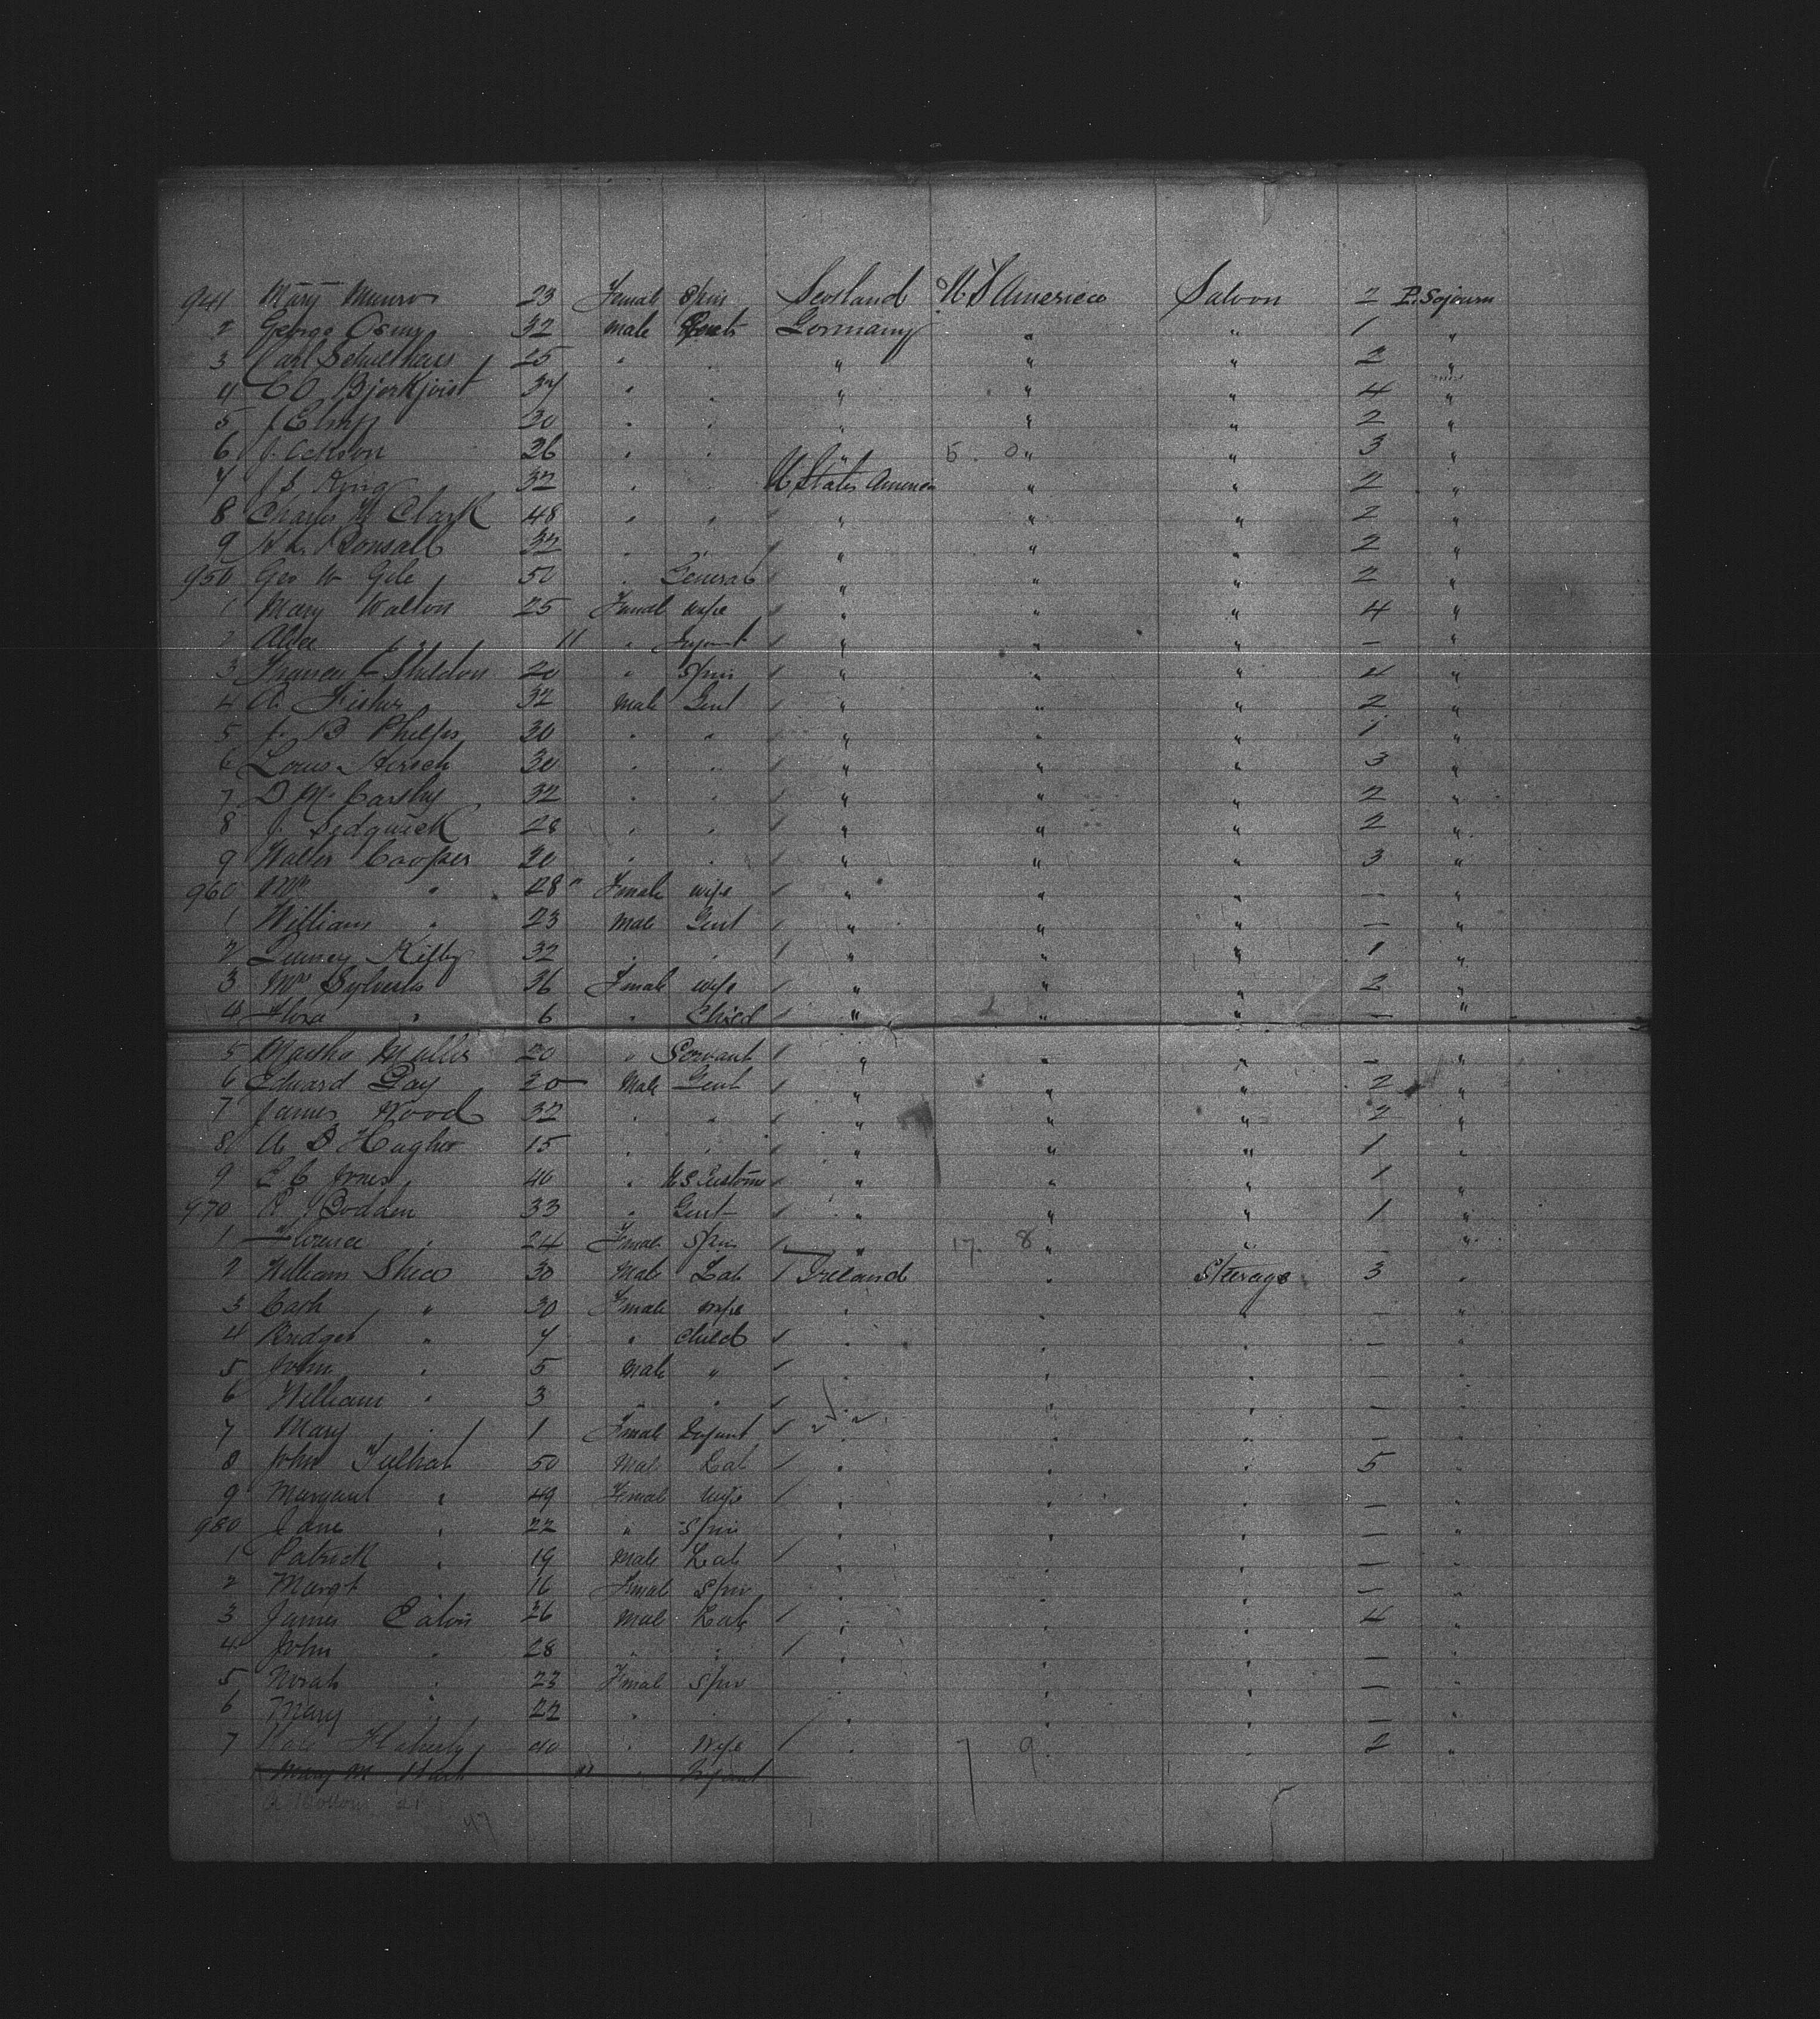 941 Mary Munro 23 Female Spin Scotland U S America Saloon 2 P. Sojourn
2 George 32 male Gents Germany " " 1 "
3 Carl Schulthais 25 " " " " " 2 "
4 C O Bjorkjvist 34 " " " " " 4 "
5 J 20 " " " " " 2 "
6 J. Ackson 26 " " " 5 0 " " 3 "
7 J S King 32 " " U States America " " 2 "
8 Charles W Clark 48 " " " " " 2 "
9 H. L. Bonsall 32 " " " " " 2 "
950 Geo W Gile 50 " General " " " 2 "
1 Mary Walton 25 Femal wife " " " 4 "
2 Alice " 11 " Infant " " " — "
3 Frances L Sheldon 20 " Spin " " " 4 "
4 A. Fisher 32 Male Gent " " " 2 "
5 J. B Phelps 30 " " " " " 1 "
6 Louis Hirsch 30 " " " " " 3 "
7 D Mc Carthy 32 " " " " " 2 "
8 J. Sedgwick 28 " " " " " 2 "
9 Walter Cooper 30 " " " " " 3 "
960 Mrs " 28 " Female wife " " " — "
1 William " 23 Male Gent " " " — "
2 Kilby 32 " " " " " 1 "
3 Mrs Sylvester 36 Female wife " " " 2 "
4 Flora " 6 " Child " " " — "
5 Martha Muller 20 " Servant " " " — "
6 Edward Gay 20 Male Gent " " " 2 "
7 James Wood 32 " " " " " 2 "
8 A D Hughes 15 " " " " " 1 "
9 E C Jones 40 " U S Customs " " " 1 "
970 R. Bodden 33 " Gent " " " 1 "
1 Florence " 24 Femal Spin " 17. 8 " " — "
2 William Shea 30 Male Lab Ireland " Steerage 3 "
3 Cath " 30 Female wife " " " — "
4 Bridget " 7 " Child " " " — "
5 John " 5 Male " " " " — "
6 William " 3 " " " " " — "
7 Mary " 1 Female Infant " " " — "
8 John 50 Male Lab " " " 5 "
9 Margaret " 49 Femal wife " " " — "
980 Jane " 22 " Spin " " " — "
1 Patrick " 19 Male Lab " " " — "
2 Margt " 16 Femal Spin " " " — "
3 James 26 Male Lab " " " 4 "
4 John " 28 " " " " " — "
5 Norah " 23 Femal Spin " " " — "
6 Mary " 22 " " " " " — "
7 Flaherty 40 " Wife " 7 9 " " 2 "
Mary M 11 " Infant
47